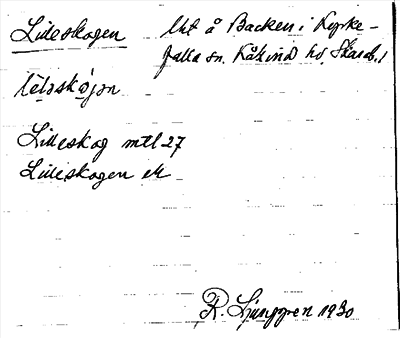 Lilleskogen
Lht å Backen i Kyrke-
falla sn. Kåkind hd, Skarab.l
Lilleskog mtl 27
Lilleskogen ek
R. Ljunggren 1930